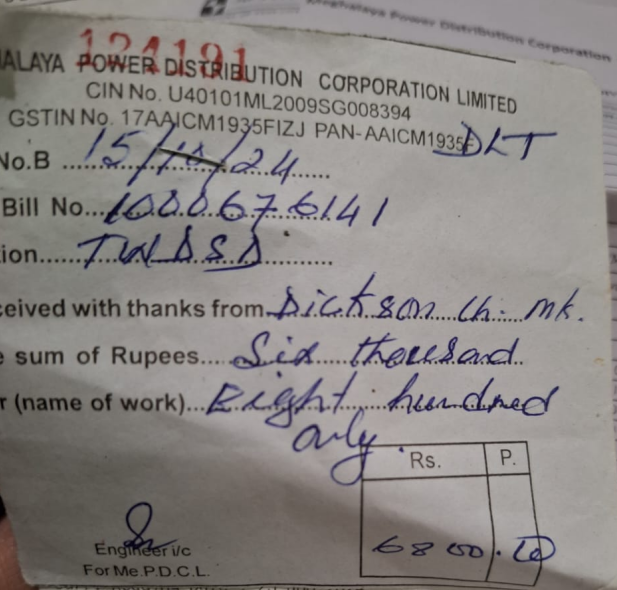 Meghalaya Power Distribution Corporation
124191
ALAYA POWER DISTRIBUTION CORPORATION LIMITED
CIN No. U40101ML2009SG008394
GSTIN No. 17AAICM1935FIZJ PAN-AAICM1935F DLT
No.B ....15/10/24......
Bill No...1000676141
ion......TWDSD..........
ceived with thanks from..Dickson Ch. Mk.
e sum of Rupees....Six thousand..
r (name of work)...Eight hundred
only
Rs. P.
6800.00
Engineer i/c
For Me.P.D.C.L.